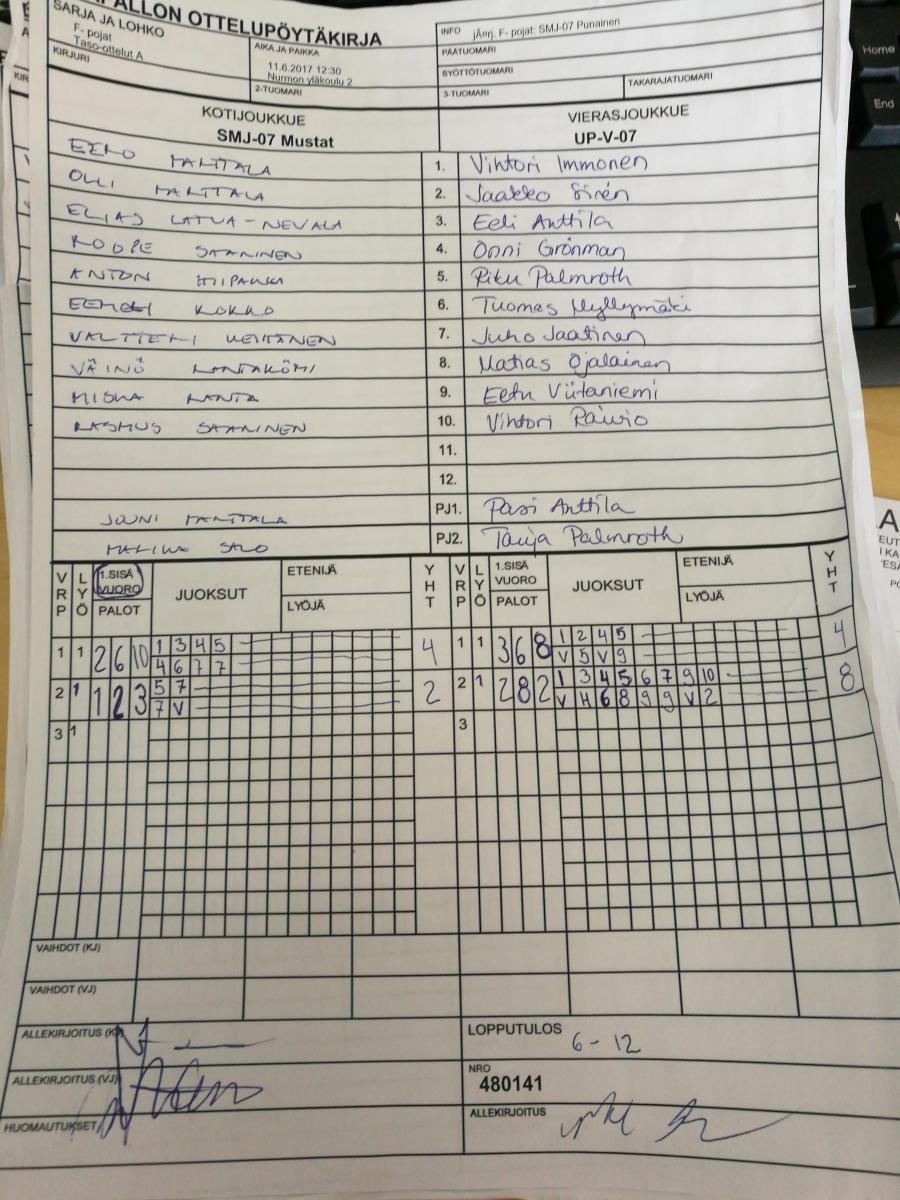 OTTELUPÖYTÄKIRJA
SARJA JA LOHKO
F- pojat
Taso-ottelut A
AIKA JA PAIKKA
11.6.2017 12:30
Nurmon yläkoulu 2
INFO jÄerj. F- pojat: SMJ-07 Punainen
PÄÄTUOMARI
SYÖTTÖTUOMARI
KIRJURI
2-TUOMARI
3-TUOMARI
TAKARAJATUOMARI
KOTIJOUKKUE
SMJ-07 Mustat
VIERASJOUKKUE
UP-V-07
EERO MANTTALA 1. Vihtori Immonen
OLLI MANTTALA 2. Jaakko Sirén
ELIAS LATVA-NEVALA 3. Eeli Anttila
ROOPE SAARINEN 4. Onni Grönman
ANTON 5. Riku Palmroth
KOKKO 6. Tuomas Myllymäki
VALTTERI 7. Juho Jaatinen
VÄINÖ 8. Matias Ojalainen
MISKA RANTA 9. Eetu Viitaniemi
RASMUS SAARINEN 10. Vihtori Räwiö
11.
12.
JOUNI MANTTALA PJ1. Pasi Anttila
SALO PJ2. Tarja Palmroth
VRP LYÖ 1.SISÄ VUORO PALOT JUOKSUT ETENIJÄ LYÖJÄ YHT VRP LYÖ 1.SISÄ VUORO PALOT JUOKSUT ETENIJÄ LYÖJÄ YHT
1 1 2 6 10 1 3 4 5 4 1 1 3 6 8 1 2 4 5 4
4 6 7 7 V 5 V 9
2 1 1 2 3 5 7 2 2 1 2 8 2 1 3 4 5 6 7 9 10 8
7 V V H 6 8 9 9 V 2
3 1 3
VAIHDOT (KJ)
VAIHDOT (VJ)
ALLEKIRJOITUS (KJ)
LOPPUTULOS
6 - 12
ALLEKIRJOITUS (VJ)
NRO
480141
HUOMAUTUKSET
ALLEKIRJOITUS
Home
End